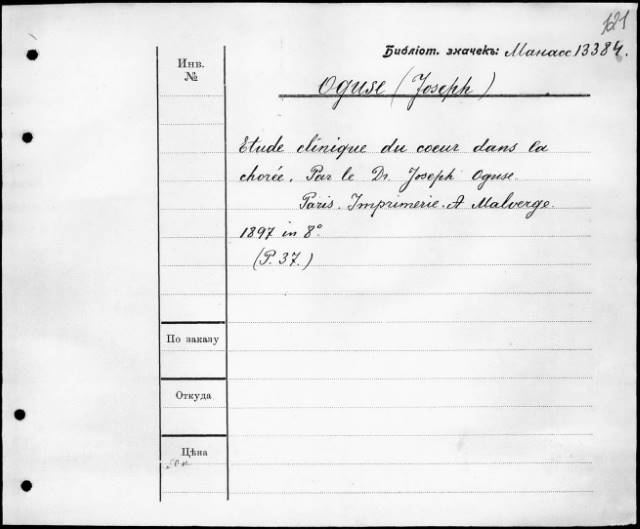 121
Библіот. значекъ: Манасс 13384.
Инв.
№
Oguse (Joseph)
Etude clinique du coeur dans la
chorée. Par le Dr. Joseph Oguse.
Paris. Imprimerie. A Malverge.
1897 in 8°
(P. 37.)
По заказу
Откуда
Цѣна